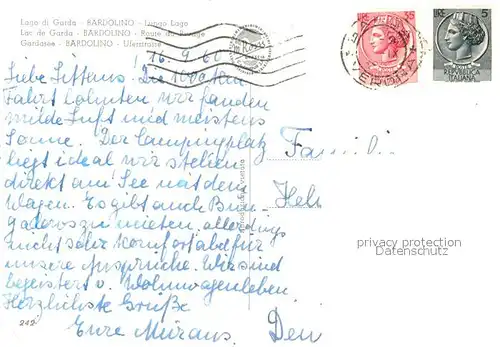 Lago di Garda - BARDOLINO - Lungo Lago
Lac de Garda - BARDOLINO - Route du Rivage
Gardasee - BARDOLINO - Uferstrasse
16.9.60
Liebe
Fahrt lohnten wir fanden
milde Luft und meistens
Sonne. Der Campingplatz
liegt ideal wir stehen
direkt am See mit dem
Wagen. Es gibt auch Bun-
galows zu mieten, allerdings
nicht sehr komfortabel für
unsere Ansprüche. Wir sind
begeistert v. Wohnwagenleben.
Herzlichste Grüße
Eure
242
LIRE 5
REPVBBLICA
ITALIANA
Fa
Hel
Den
privacy protection
Datenschutz